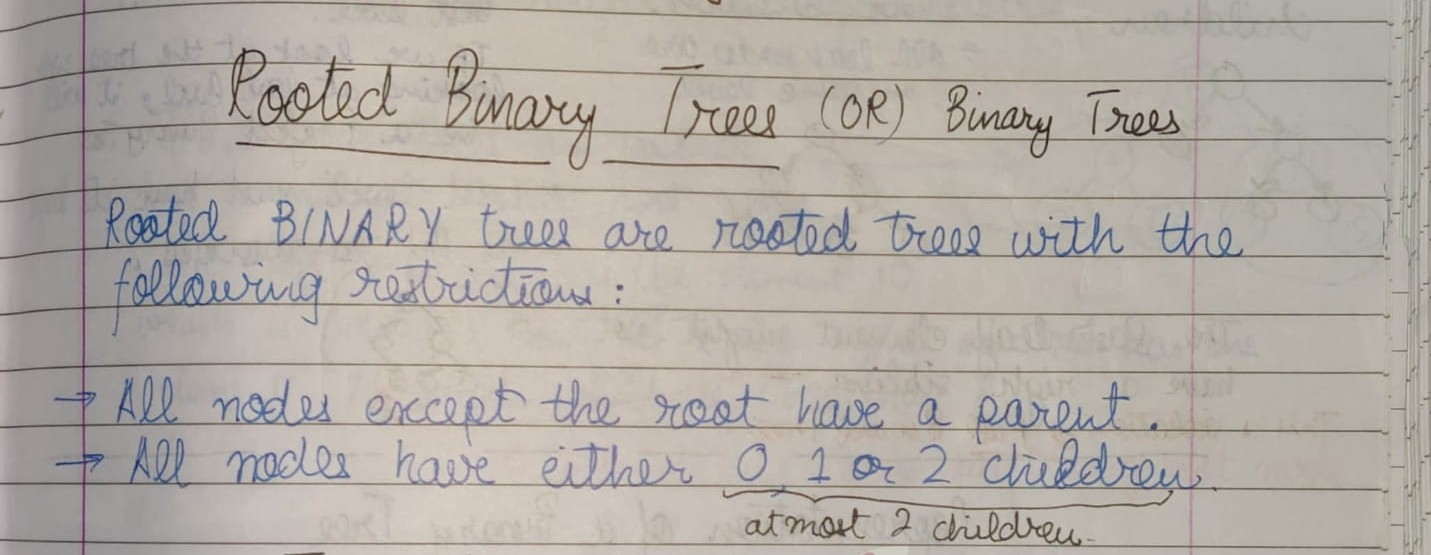 Rooted Binary Trees (OR) Binary Trees
Rooted BINARY trees are rooted trees with the
following restrictions:
→ All nodes except the root have a parent.
→ All nodes have either 0, 1 or 2 children.
atmost 2 children.